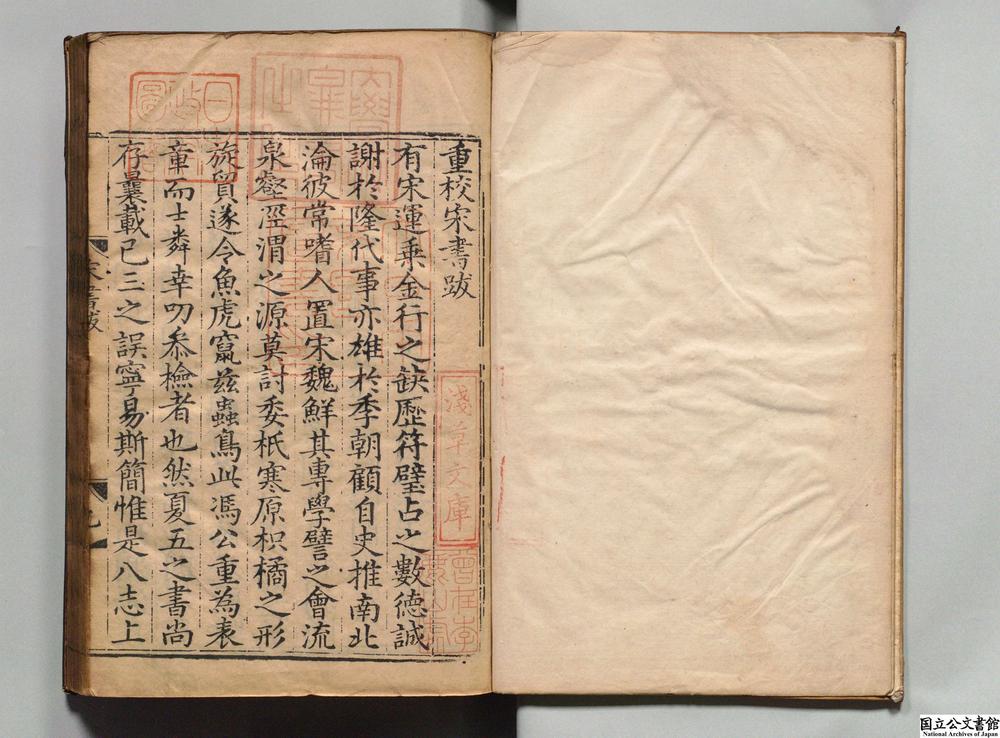 重校宋書跋
有宋運乗金行之缺歷符璧占之數德誠
謝於隆代事亦雄於季朝顧自史推南北
淪彼常嗜人置宋魏鮮其專學譬之會流
泉壑涇渭之源莫討委柢寒原枳橘之形
旋貿遂令魚虎竄兹蟲鳥此馮公重為表
章而士粦幸叨叅檢者也然夏五之書尚
存曩載已三之誤寧易斯簡惟是八志上
淺草文庫
宋書跋
九
国立公文書館
National Archives of Japan